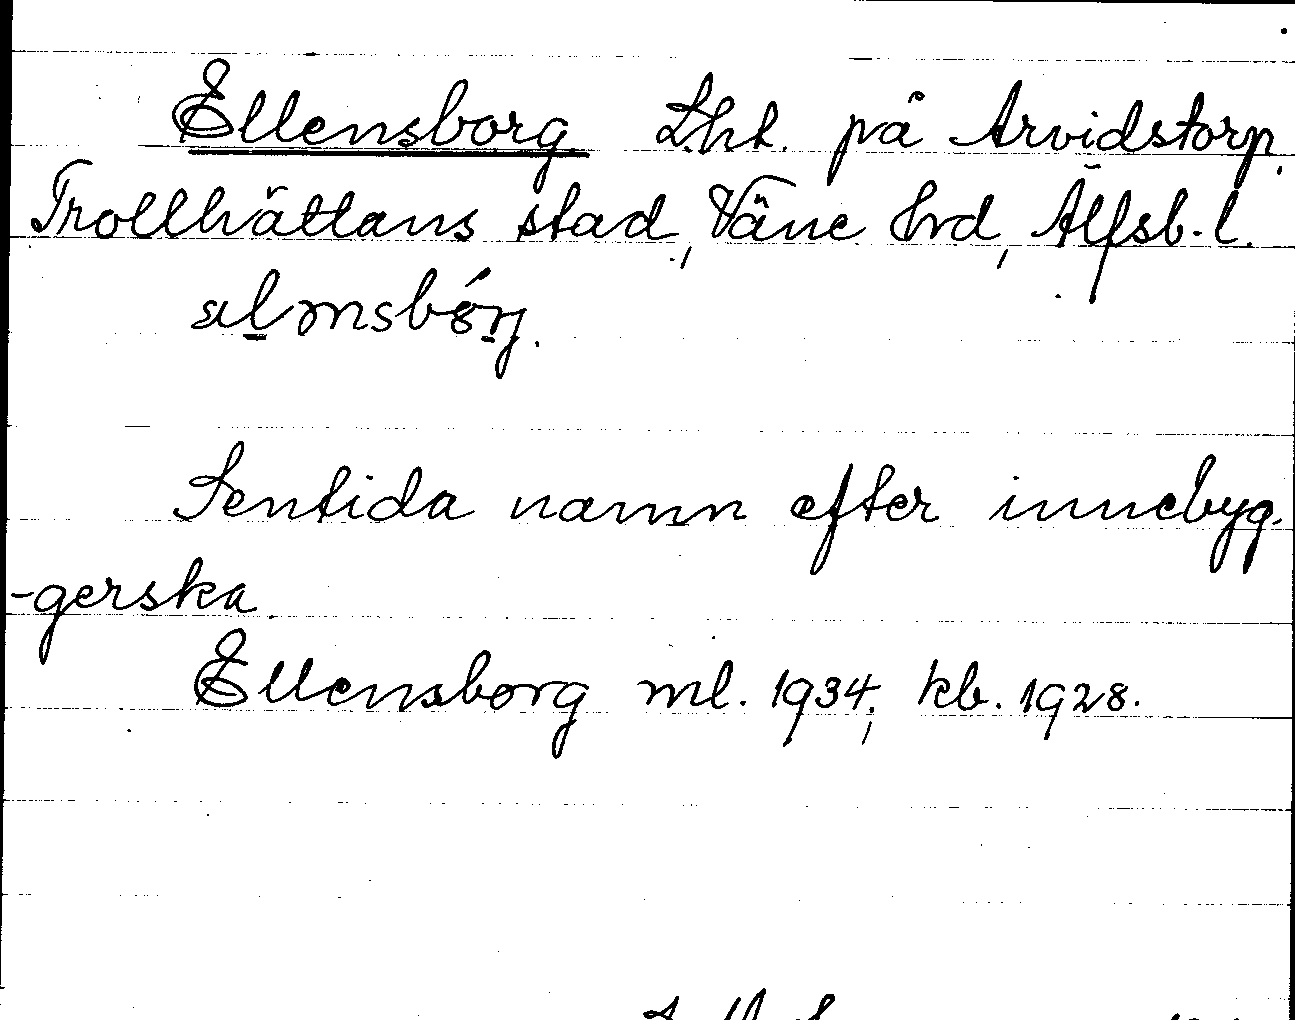 Ellensborg Lht. på Arvidstorp.
Trollhättans stad, Väne hrd, Älfsb. l.
Sentida namn efter innebyg-
-gerska.
Ellensborg ml. 1934; kb. 1928.